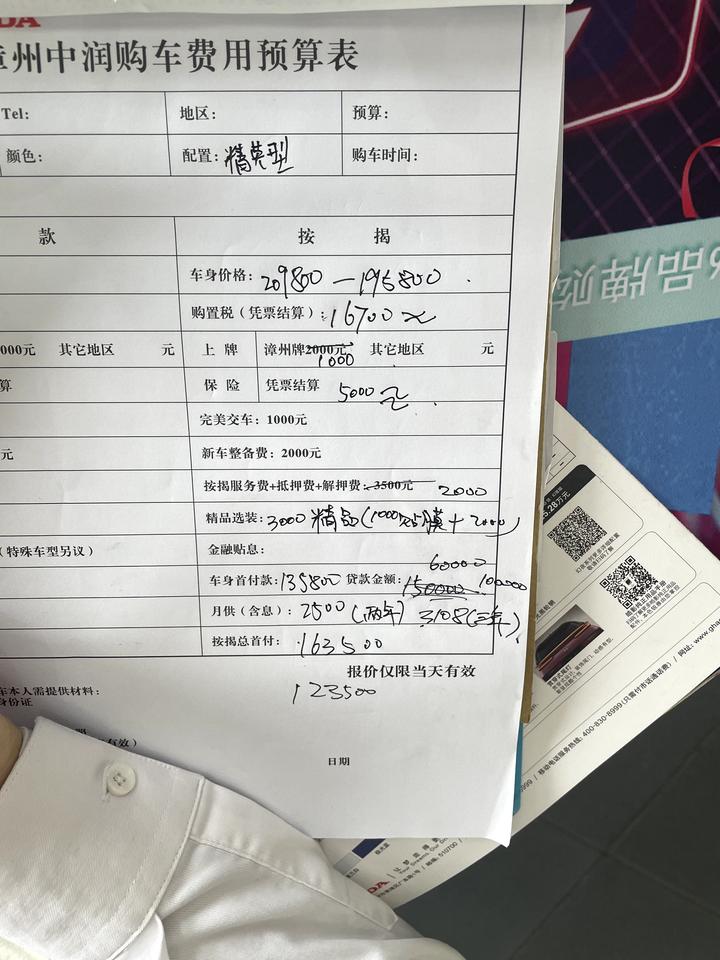 DA
州中润购车费用预算表
Tel: 地区: 预算:
颜色: 配置: 精英型 购车时间:
款 按 揭
车身价格: 209800—195800
购置税（凭票结算）: 16700元
000元 其它地区 元 上 牌 漳州牌2000元 1000 其它地区 元
算 保 险 凭票结算 5000元
完美交车: 1000元
元 新车整备费: 2000元
按揭服务费+抵押费+解押费: 3500元 2000
精品选装: 3000 精品(1000贴膜+2000)
（特殊车型另议） 金融贴息:
60000
车身首付款: 135800 贷款金额: 150000 100000
月供（含息）: 2500(两年) 3108(三年)
按揭总首付: 163500
报价仅限当天有效
123500
车本人需提供材料:
身份证
有效）
日期
品牌贴
5.28万元
400-830-8999(只需付市话通话费) / 网址: www.gha
8999 / 移动电话服务热线:
DA